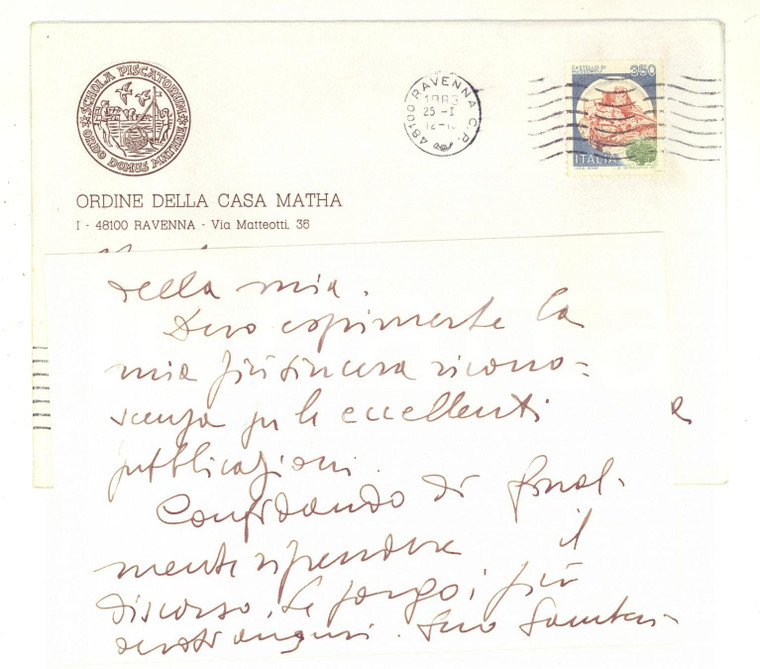 SCHOLA PISCATORUM
ORDO DOMUS
RAVENNA C.P.
1983
25 - I
12-1
48100
350
ITALIA
ORDINE DELLA CASA MATHA
I - 48100 RAVENNA - Via Matteotti, 36
della mia.
Devo esprimerle la
mia più sincera ricono=
scenza per le eccellenti
pubblicazioni.
Confidando di final-
mente riprendere il
discorso, Le porgo i più
devoti auguri. Suo